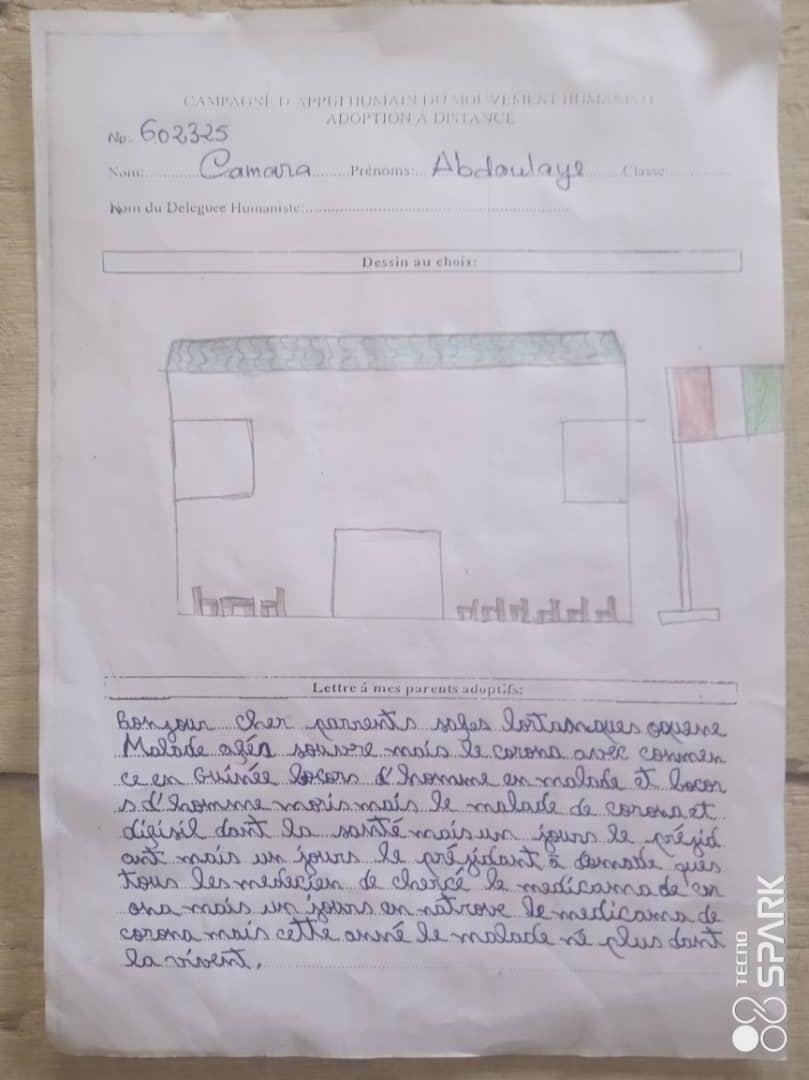 CAMPAGNE D'APPUI HUMAIN DU MOUVEMENT HUMANISTE
ADOPTION A DISTANCE
No: 602325
Nom: Camara Prénoms: Abdoulaye Classe:
Nom du Deleguee Humaniste:
Dessin au choix:
Lettre á mes parents adoptifs:
Bonjour cher parrents
Malade mais le corona avec commen
ce en Guinée d'homme en malade et bocor
s d'homme moris mais le malade de corona et
digisil dant la santé mais un jours le préjid
ant mais un jours le préjidant à demade ques
tous les medecien de chercé le medicama de cor
ona mais un jours en natrove le medicama de
corona mais cette anné le malade né plus dant
la vivent.
TECNO
SPARK